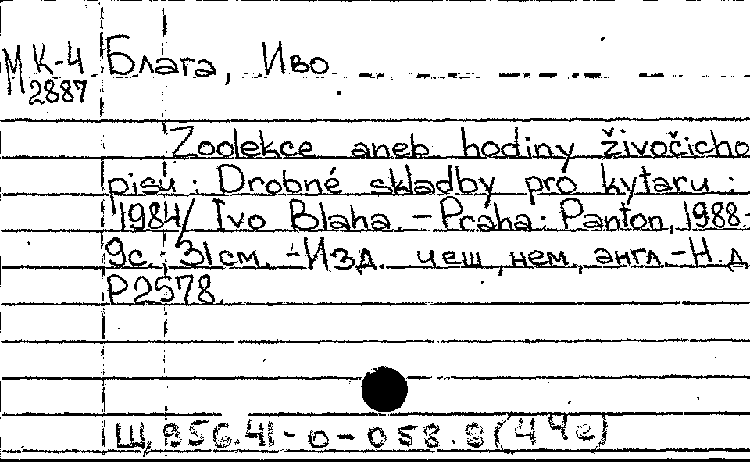 МК-4 Блага, Иво
2887
Zoolekce aneb hodiny živočicho
pisu: Drobné skladby pro kytaru:
1984/ Ivo Blaha. - Praha: Panton, 1988.
9с.; 31см. - Изд. чеш, нем, англ. - Н.д
Р2578.
Щ,856.41-0-058.8(4Че)